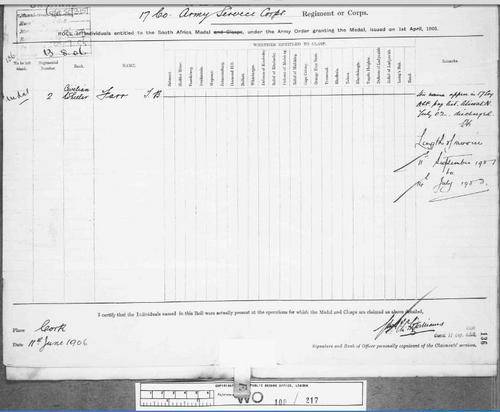 17 Co. Army Service Corps Regiment or Corps.
ROLL of Individuals entitled to the South Africa Medal and Clasps, under the Army Order granting the Medal, issued on 1st April, 1901.
13.8.06
WHETHER ENTITLED TO CLASP.
Regimental Number
Rank.
NAME.
Belmont.
Modder River.
Paardeberg.
Driefontein.
Wepener.
Johannesburg.
Diamond Hill.
Belfast.
Wittebergen.
Defence of Kimberley.
Relief of Kimberley.
Defence of Mafeking.
Relief of Mafeking.
Cape Colony.
Orange Free State.
Transvaal.
Rhodesia.
Talana.
Elandslaagte.
Tugela Heights.
Defence of Ladysmith.
Relief of Ladysmith.
Laing's Nek.
Natal.
Remarks
Medal
2
Civilian
Farr J.B
name appears in 17 Coy
pay list
July 02. discharged.
Length of service
11th September 1901
to
July
I certify that the Individuals named in this Roll were actually present at the operations for which the Medal and Clasps are claimed as above detailed,
Place Cork
Date 11th June 1906
Signature and Rank of Officer personally cognizant of the Claimants' services.
136
PUBLIC RECORD OFFICE, LONDON
Reference
WO 100 / 217